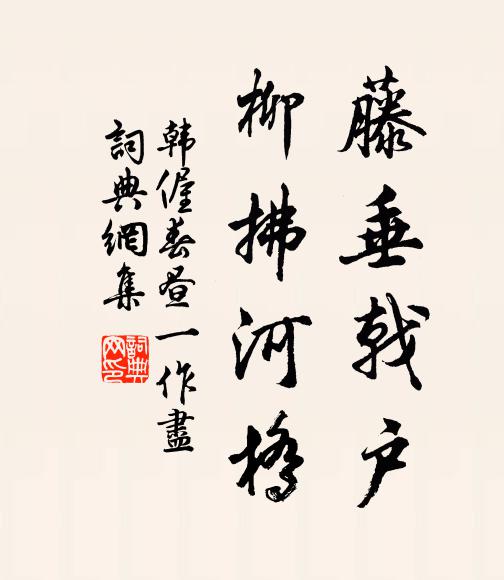 藤垂戟户
柳拂河橋
韩偓春晝一作盡
詞典網集
詞典网印